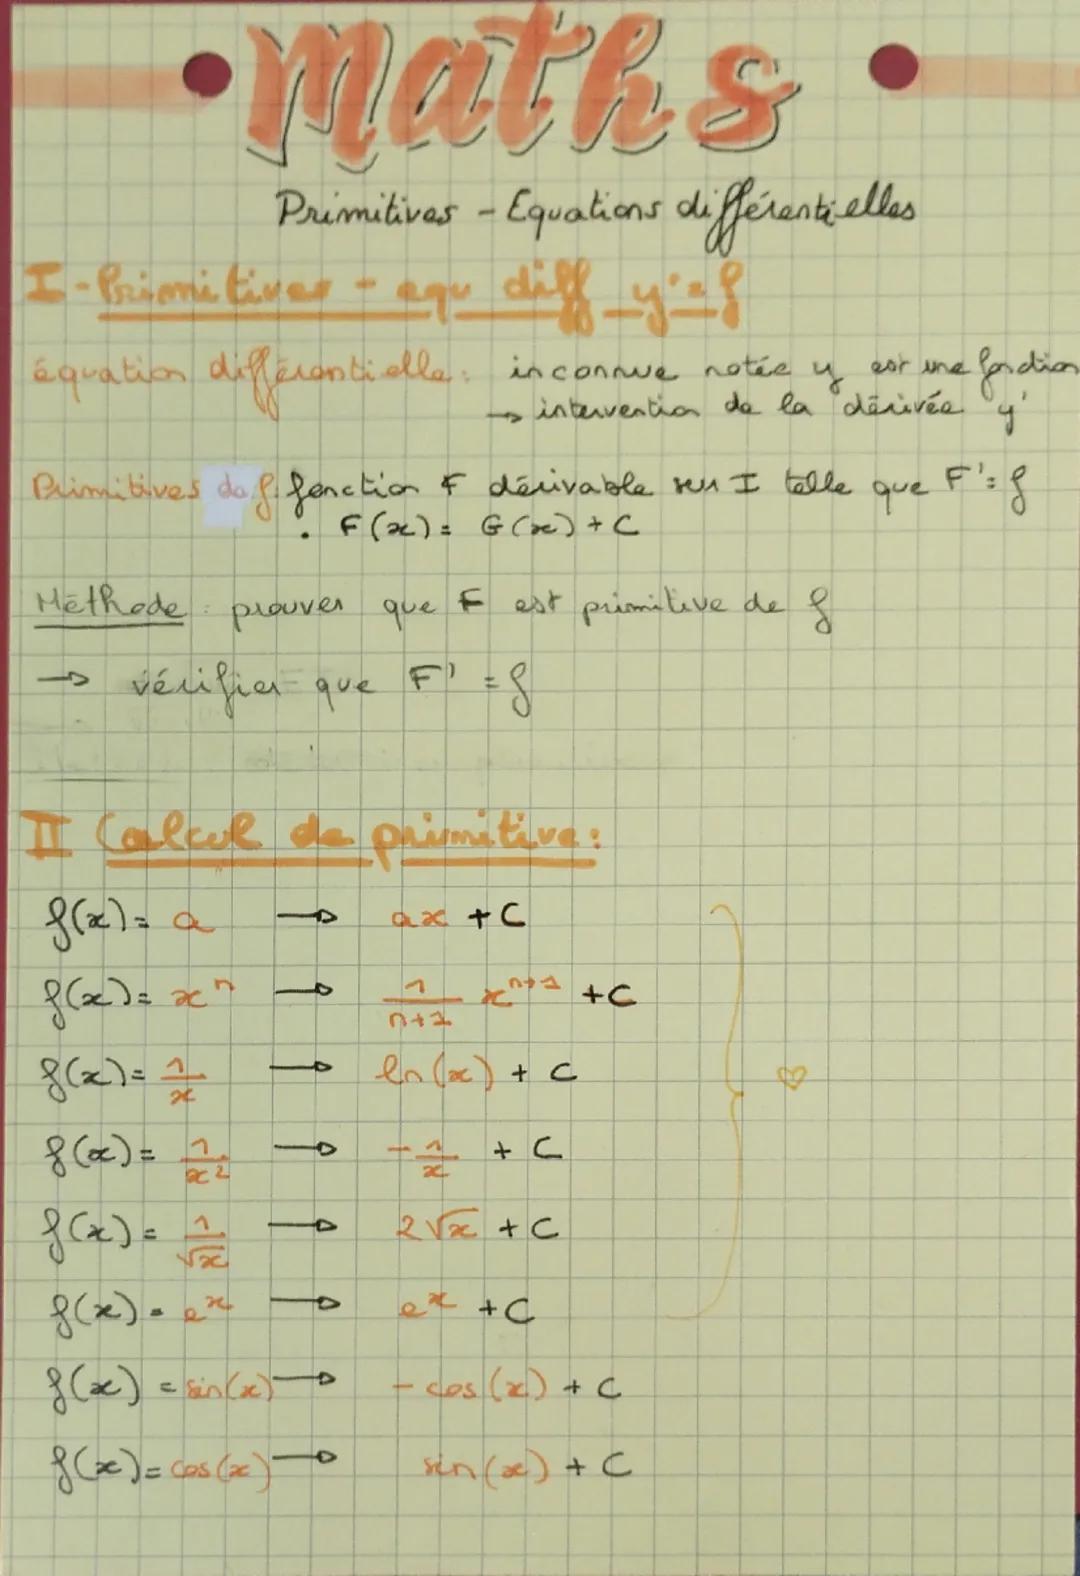 Maths
Primitives - Equations différentielles
I - Primitives - equ diff y' = f
équation différentielle : inconnue notée y est une fonction
→ intervention de la dérivée y'
Primitives de f : fonction F dérivable sur I telle que F' = f
• F(x) = G(x) + C
Méthode : prouver que F est primitive de f
→ vérifier que F' = f
II Calcul de primitive :
f(x) = a → ax + C
f(x) = xⁿ → 1/(n+1) xⁿ⁺¹ + C
f(x) = 1/x → ln(x) + C
f(x) = 1/x² → - 1/x + C
f(x) = 1/√x → 2√x + C
f(x) = eˣ → eˣ + C
f(x) = sin(x) → - cos(x) + C
f(x) = cos(x) → sin(x) + C